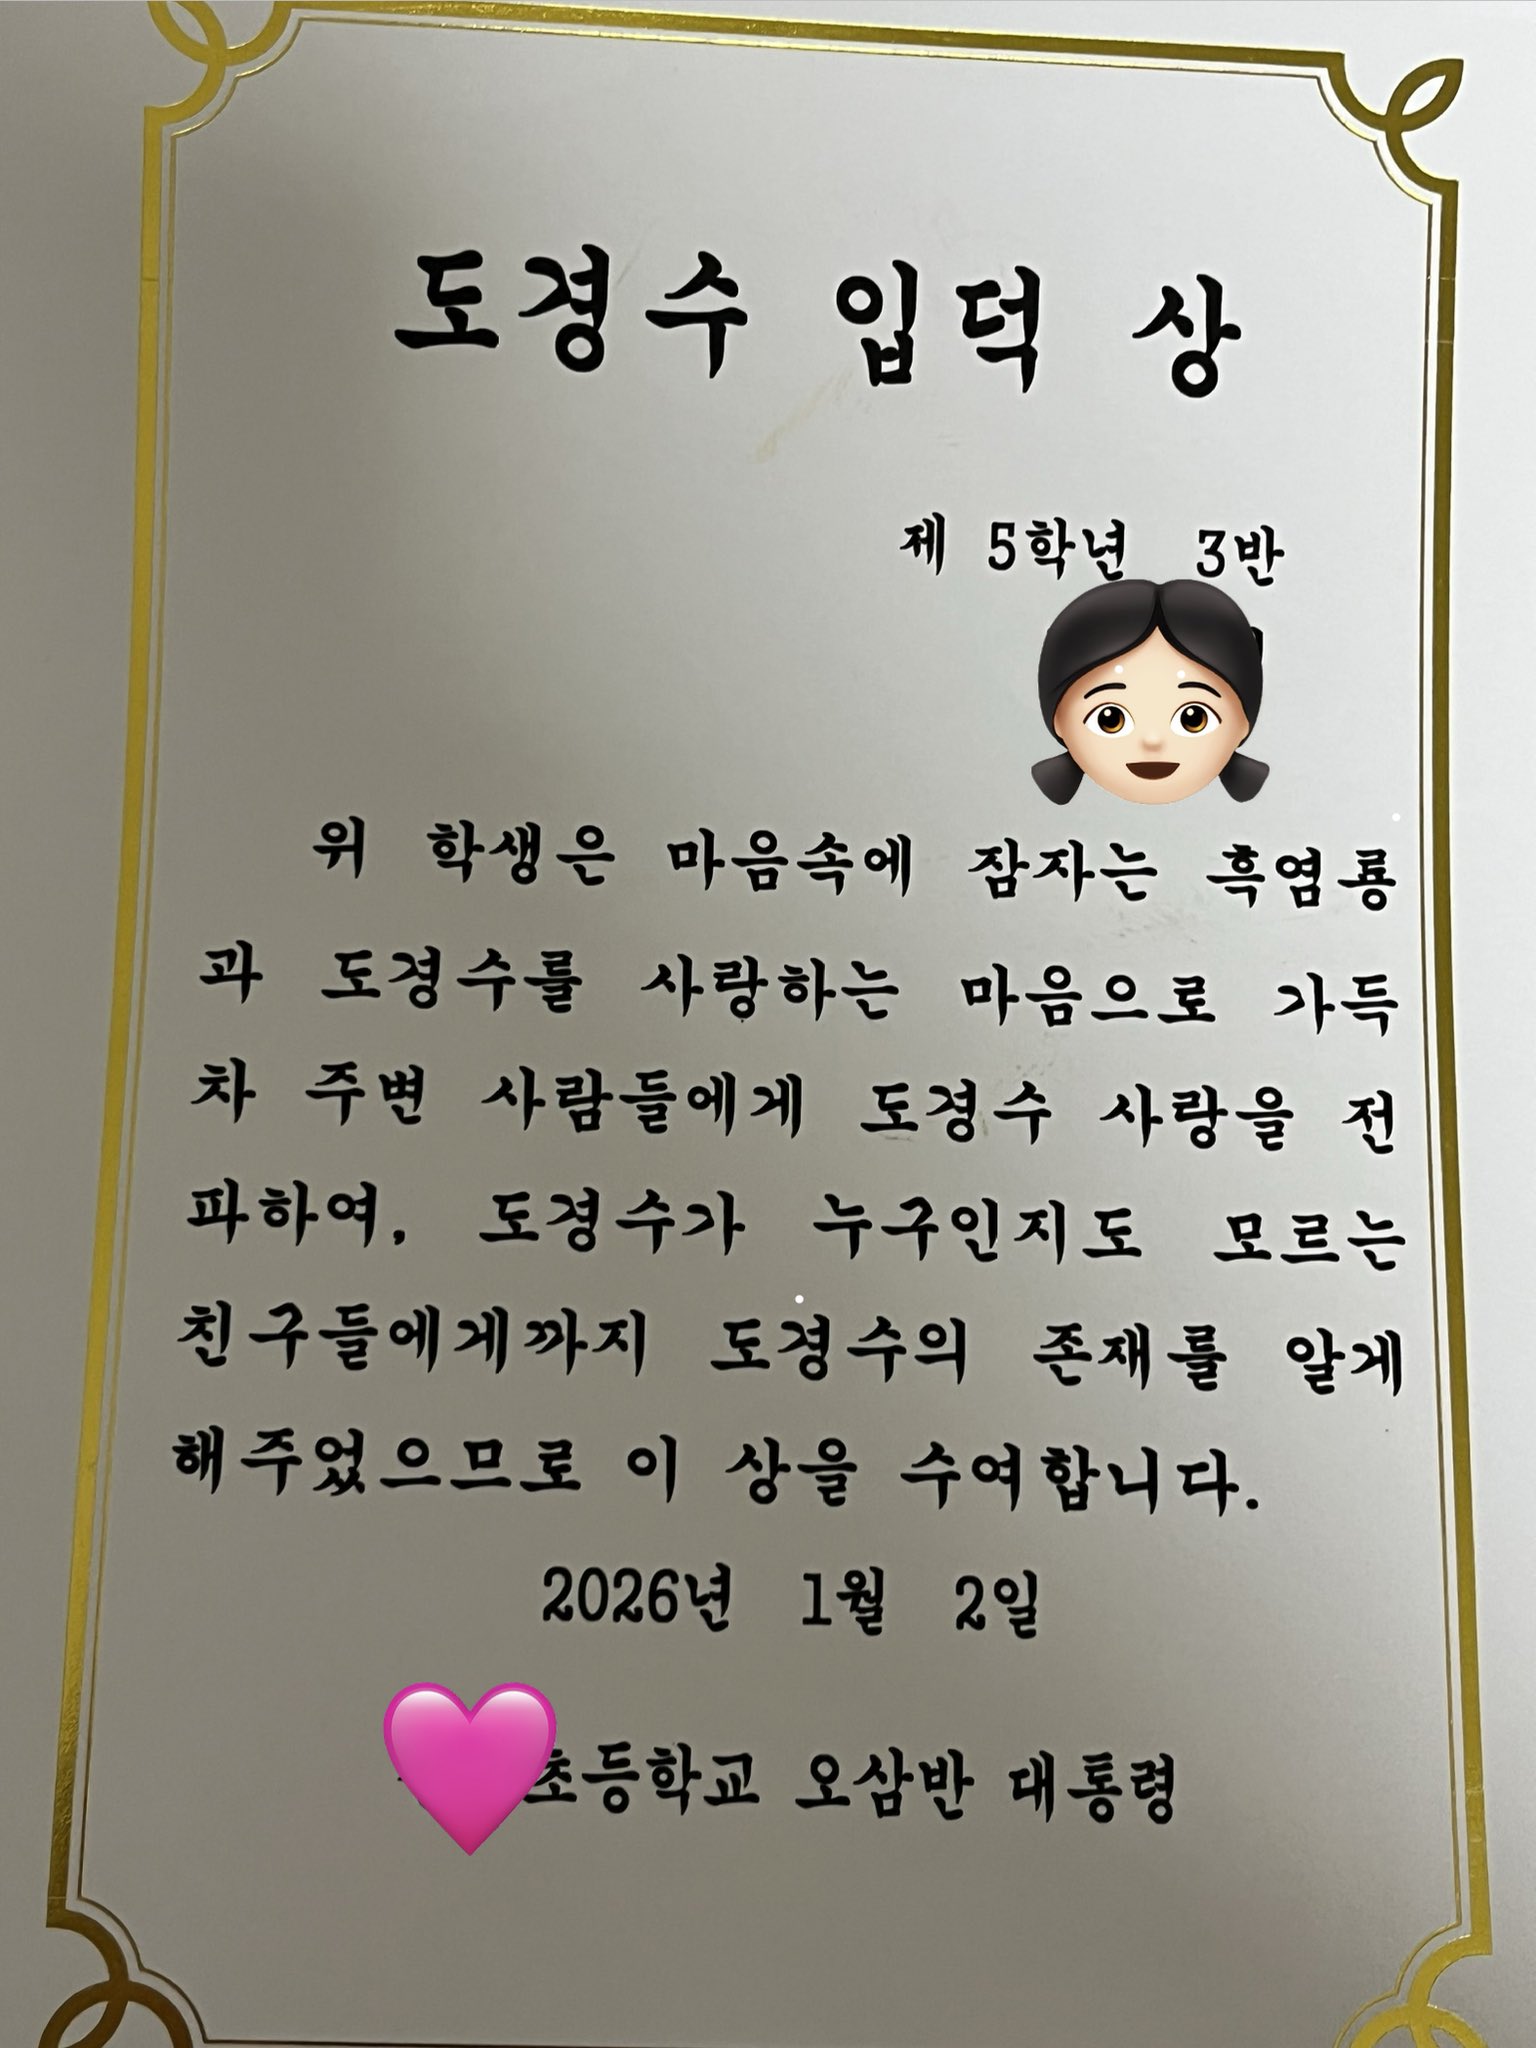 도경수 입덕 상
제 5학년 3반
위 학생은 마음속에 잠자는 흑염룡
과 도경수를 사랑하는 마음으로 가득
차 주변 사람들에게 도경수 사랑을 전
파하여, 도경수가 누구인지도 모르는
친구들에게까지 도경수의 존재를 알게
해주었으므로 이 상을 수여합니다.
2026년 1월 2일
초등학교 오삼반 대통령